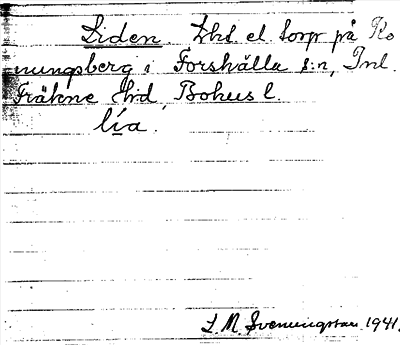 Liden. Lhs el. torp på Ko
nungsberg i Forshälla s:n, Inl.
Fräkne hd, Bohus l.
lía.
S. M. Svenungsson 1941.